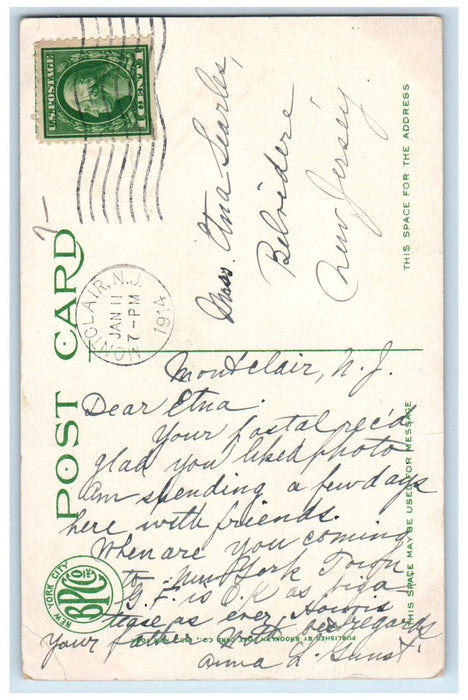 U.S. POSTAGE
1 CENT 1
7-
MONTCLAIR, N.J.
JAN 11
7-PM
1914
Miss. Etna Searles,
Belvidere
New Jersey
THIS SPACE FOR THE ADDRESS
POST CARD
Montclair, N. J.
Dear Etna.
Your postal rec'd
glad you liked photo
am spending a few days
here with friends.
When are you coming
to New York Town
G. F. is O.K. as big a
tease as ever,
Your father regards
Anna L.
THIS SPACE MAY BE USED FOR MESSAGE
NEW YORK CITY
BPC
CO INC
PUBLISHED BY BROOKLYN POST CARD CO., INC.